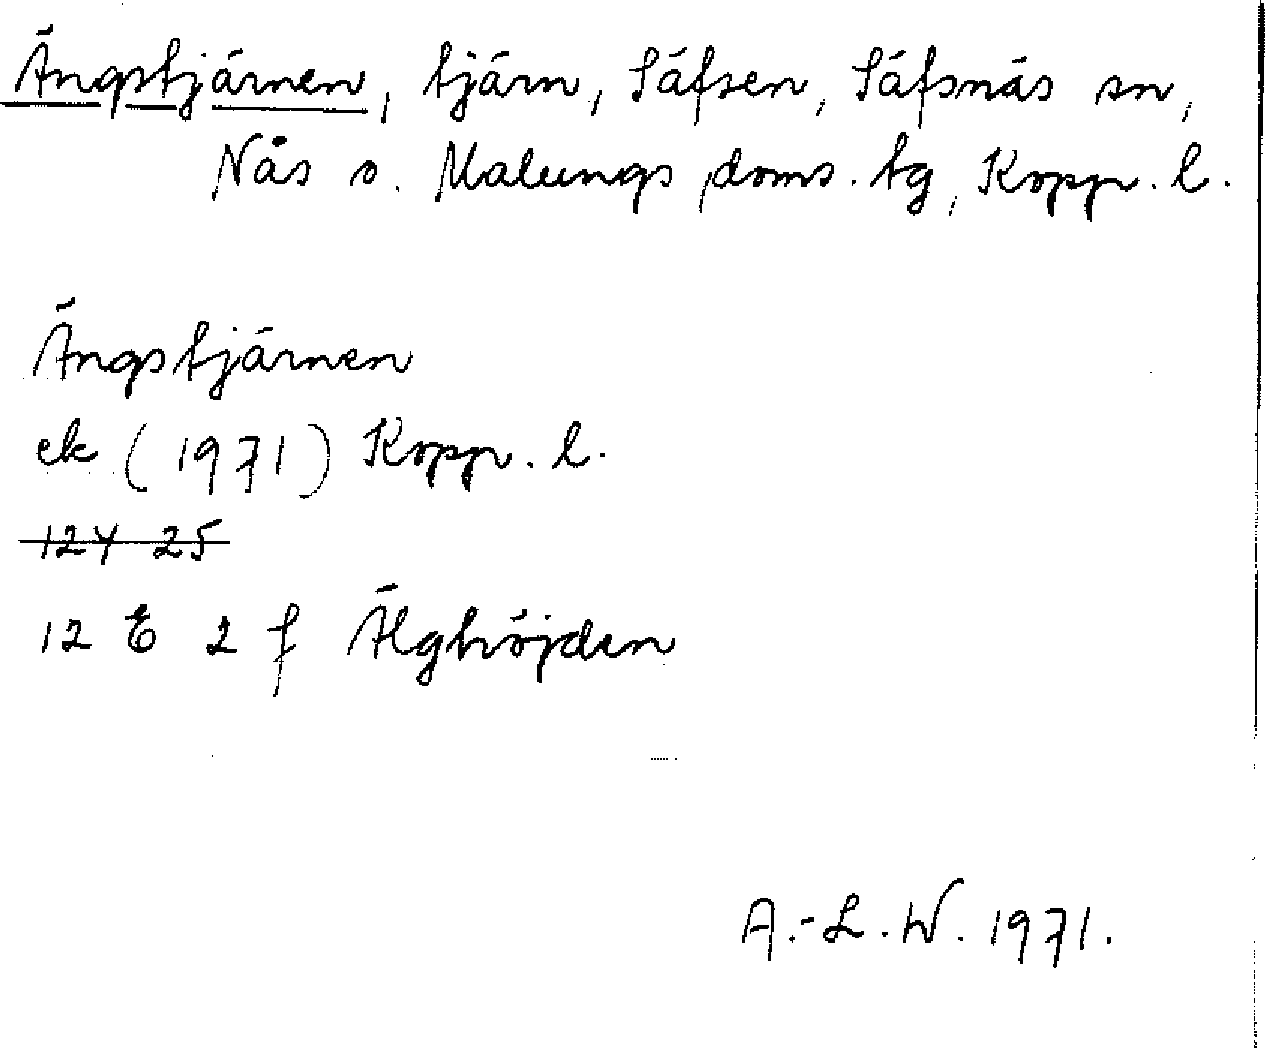 Ängstjärnen, tjärn, Säfsen, Säfsnäs sn,
Nås o. Malungs doms. tg, Kopp. l.
Ängstjärnen
ek (1971) Kopp. l.
12Y 25
12 E 2 f Älghöjden
A.-L.W. 1971.